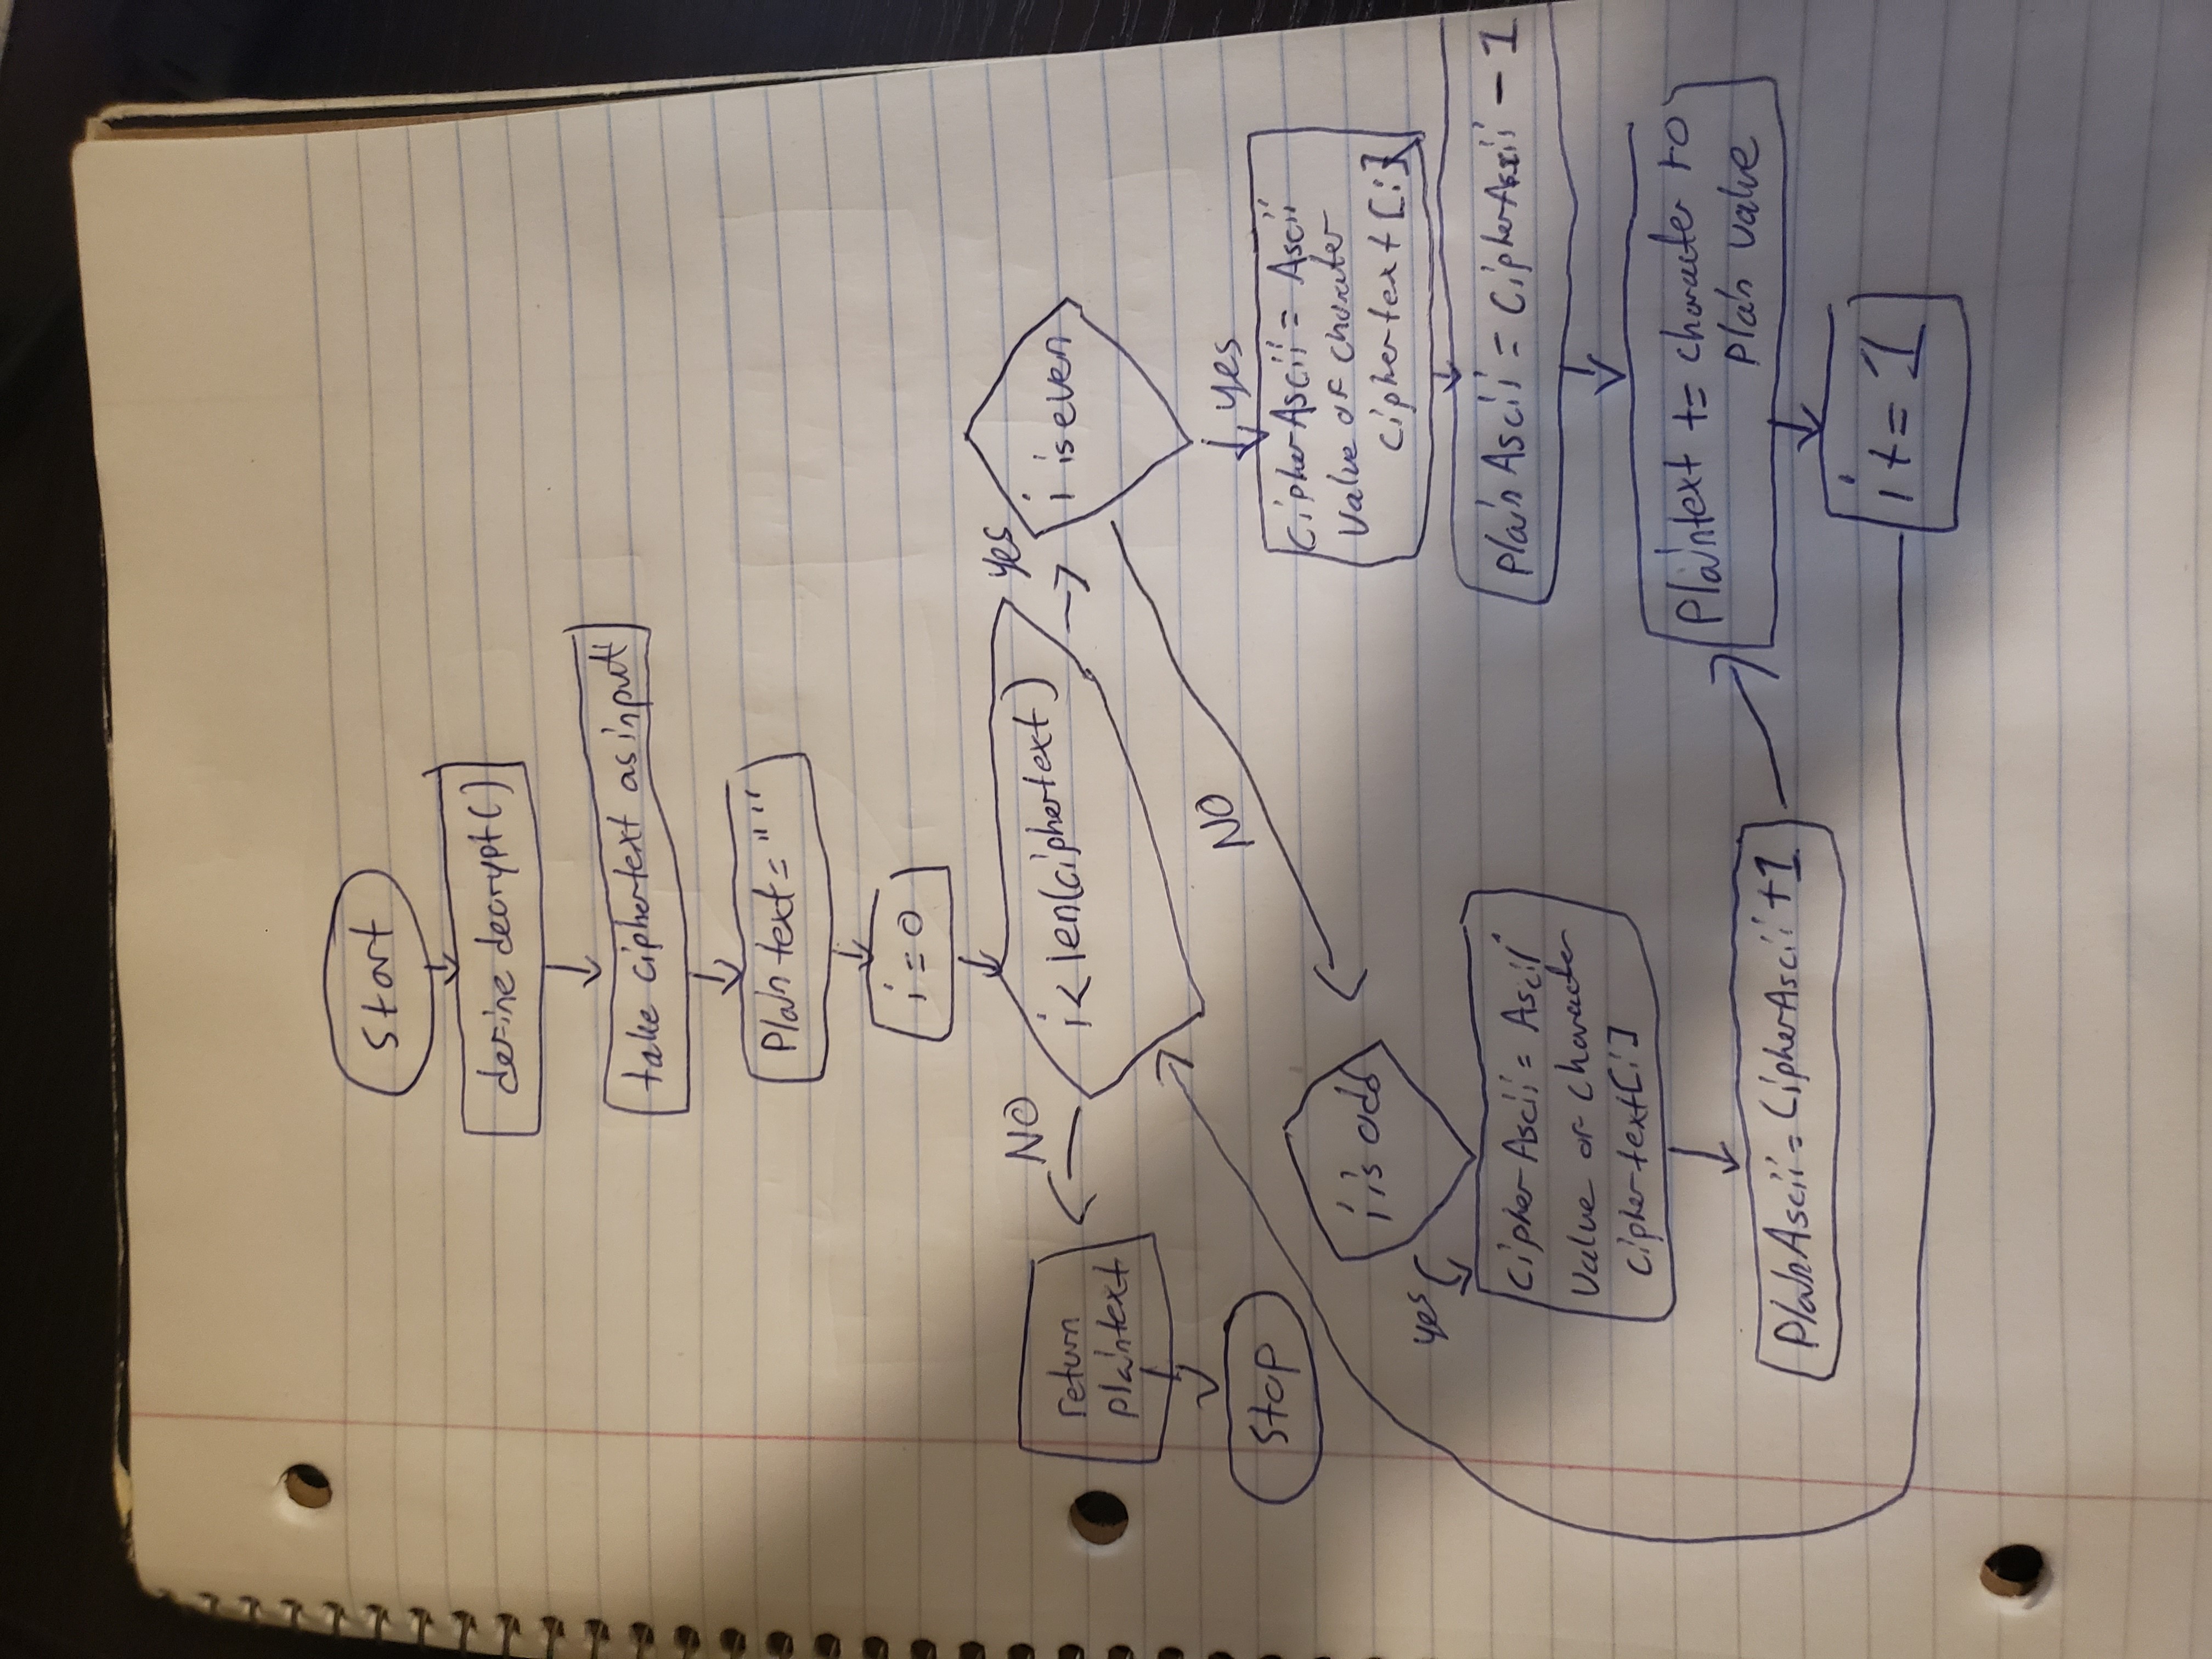 Start
define decrypt()
take ciphertext as input
Plaintext = ""
i = 0
i < len(ciphertext)
NO
return
plaintext
Stop
yes
i is even
NO
yes
CipherAscii = Ascii
Value of charater
ciphertext [i]
PlainAscii = CipherAscii - 1
i is odd
yes
CipherAscii = Ascii
Value of character
ciphertext[i]
PlainAscii = CipherAscii + 1
Plaintext += character to
Plain value
i += 1